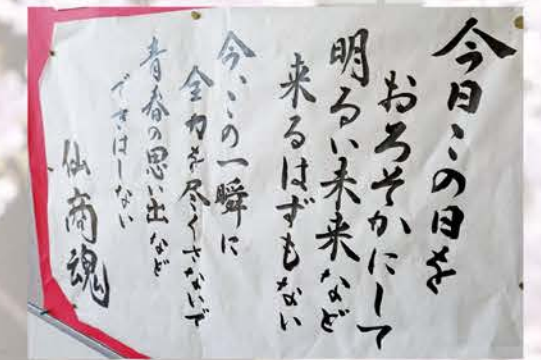 今日この日を
おろそかにして
明るい未来など
来るはずもない
今、この一瞬に
全力を尽くさないで
青春の思い出など
できはしない
仙商魂